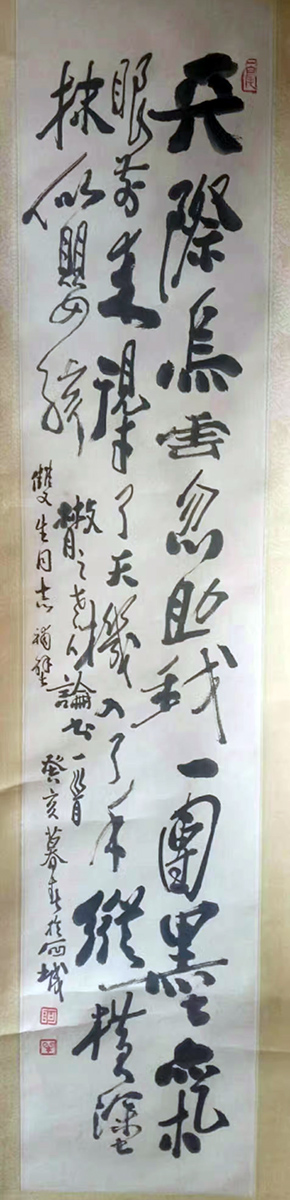 天際烏雲忽助我一團墨氣
眼前来了天機入了手縱橫塗
抹似嬰孩
散之老人論書一首
雙生同志補壁 癸亥暮春於城